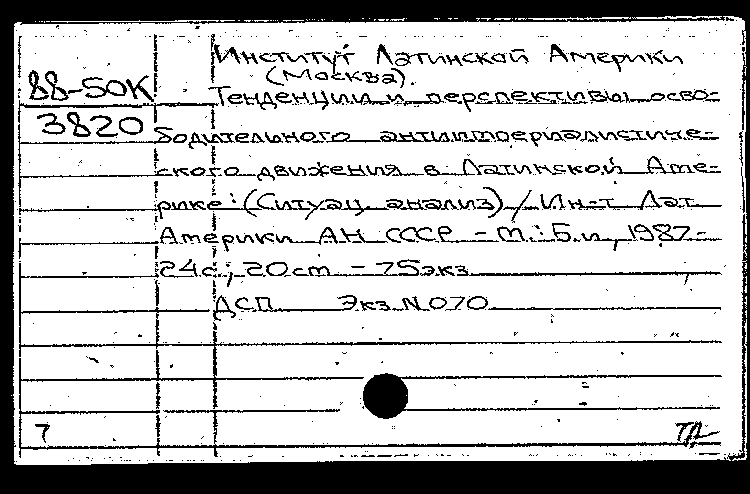 Институт Латинской Америки
(Москва).
88-50К
Тенденции и перспективы осво-
3820
бодительного антиимпериалистиче-
ского движения в Латинской Аме-
рике: (Ситуац. анализ) / Ин-т Лат.
Америки АН СССР. - М.: Б.и., 1987.-
24с.; 20см. - 75экз.
ДСП. Экз. N 070
7